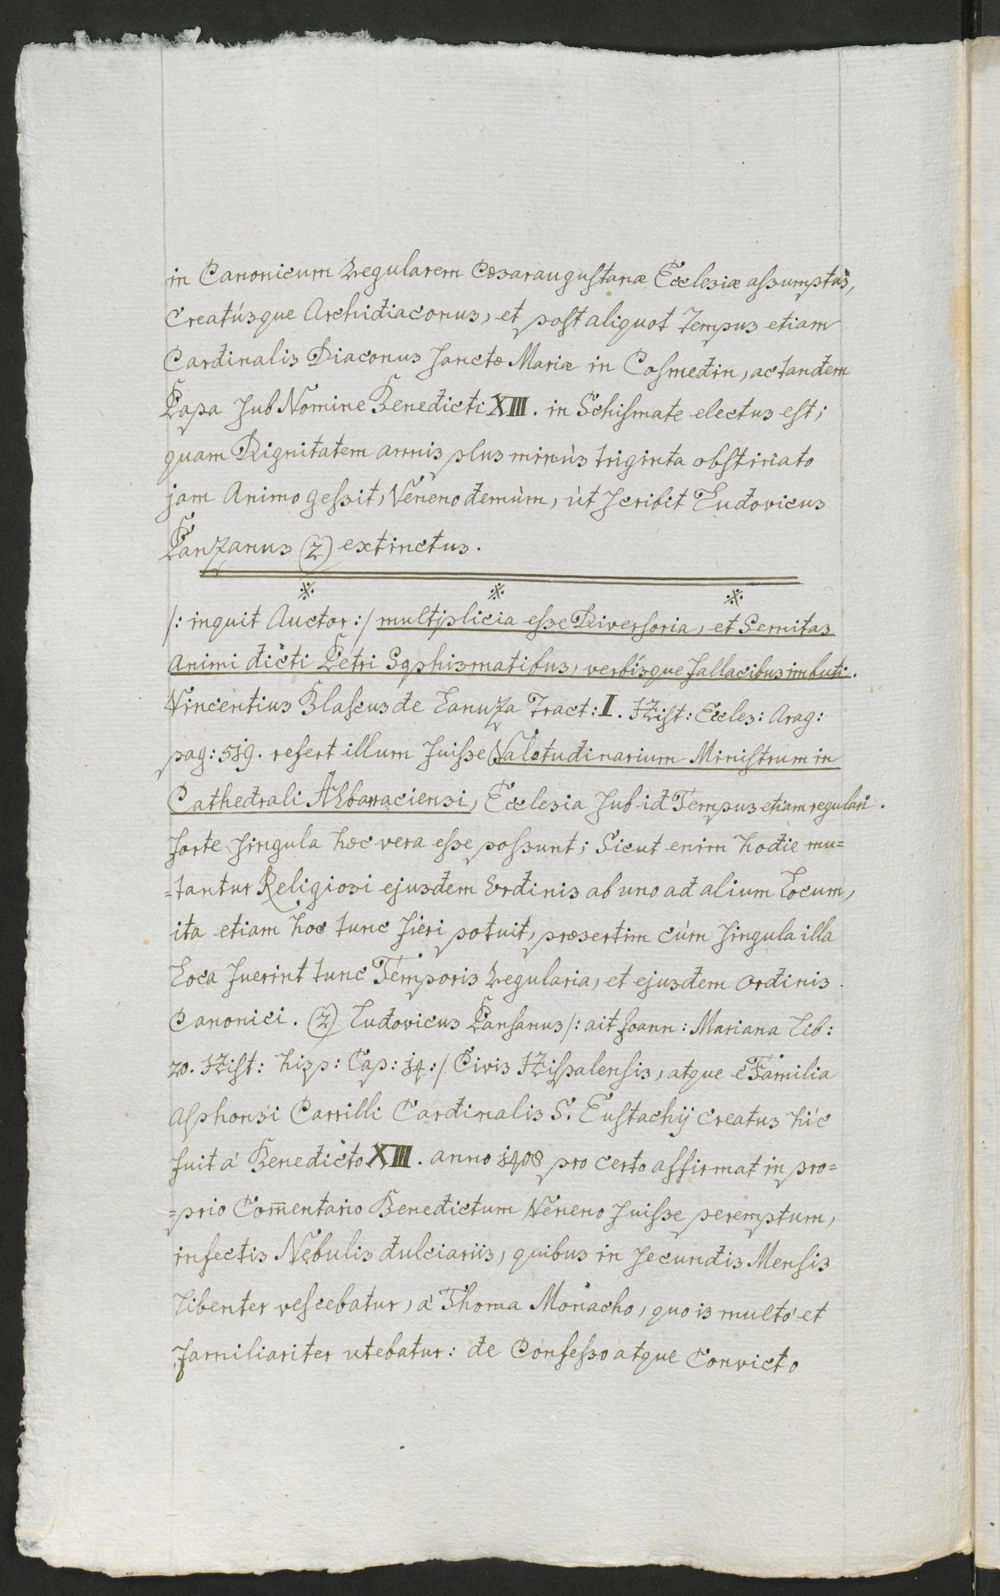 in Canonicum Regularem Cæsaraugustanæ Ecclesiæ assumptus,
Creatúsque Archidiaconus, et post aliquot Tempus etiam
Cardinalis Diaconus Sanctæ Mariæ in Cosmedin, ac tandem
Papa sub Nomine Benedicti XIII. in Schismate electus est;
quam Dignitatem annis plus minùs triginta obstinato
jam Animo gessit, Veneno demùm, ùt scribit Ludovicus
Panzanus (2) extinctus.
※ ※ ※
/: inquit Auctor :/ multiplicia esse Diversoria, et Semitas
Animi dicti Petri Sophismatibus, verbisque fallacibus imbuti.
Vincentius Blascus de Lanuza Tract: I. Hist: Eccles: Arag:
pag: 519. refert illum fuisse Valetudinarium Ministrum in
Cathedrali Albarraciensi, Ecclesia sub id Tempus etiam regulari.
forte singula hæc vera esse possunt; Sicut enim hodie mu=
=tantur Religiosi ejusdem Ordinis ab uno ad alium Locum,
ita etiam hoc tunc fieri potuit, præsertim cùm singula illa
Loca fuerint tunc Temporis Regularia, et ejusdem Ordinis
Canonici. (2) Ludovicus Pansanus /: ait Joann: Mariana Lib:
20. Hist: Hisp: Cap: 14 :/ Civis Hispalensis, atque è Familia
Alphonsi Carrilli Cardinalis S. Eustachij creatus hic
fuit à Benedicto XIII. anno 1408 pro certo affirmat in pro=
=prio Com̄entario Benedictum Veneno fuisse peremptum,
infectis Nebulis dulciariis, quibus in secundis Mensis
libenter vescebatur, à Thoma Monacho, quo is multò et
familiariter utebatur: de Confesso atque Convicto